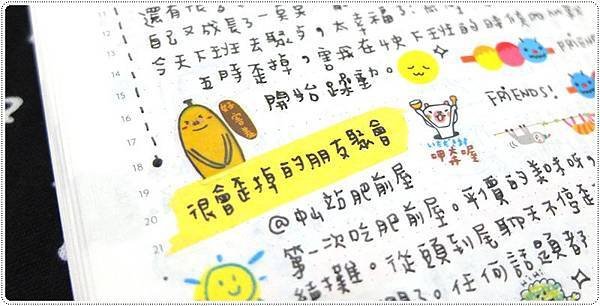 還有很
自己又成長了一
今天下班去聚
,太幸福了!
,害我在4快下班的時候
五時歪掉,
開始躁動。
FRIENDS!
好客美
很會歪掉的朋友聚會
呷奔喔
@中山站肥前屋
第一次吃肥前屋。平價的美味呀,
續攤。從頭到尾聊天不停歪
。任何話題都
11
12
13
14
15
16
17
18
19
20
21